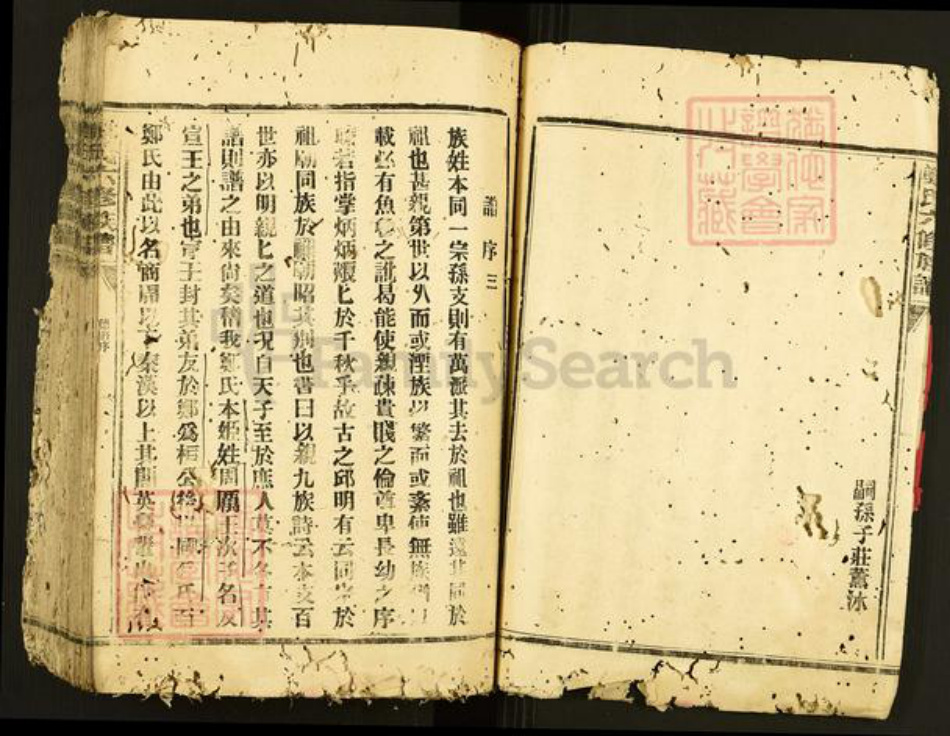 鄭氏六修族譜
嗣孫子莊薰沐
譜序三
族姓本同一宗孫支則有萬派其去於祖也雖遠其同於
祖也甚親第世以久而或湮族以繁而或紊使無族譜以
載必有魚之訛曷能使親疎貴賤之倫尊卑長幼之序
瞭若指掌炳炳烺匕於千秋乎故古之邱明有云同宗於
祖廟同族於禰廟昭其別也書曰以親九族詩云本支百
世亦以明親匕之道也況自天子至於庶人莫不各有其
譜則譜之由來尚矣稽我鄭氏本姬姓周厲王次子名友
宣王之弟也宣王封其弟友於鄭爲桓公後以國爲氏
鄭氏由此以名商以秦漢以上其間英
六修族譜
FamilySearch